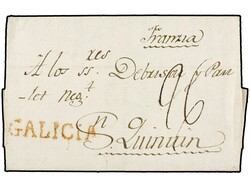 Francia
A los ss.res Debuson y Pau
let neg.t
26
GALICIA
Sn Quintin